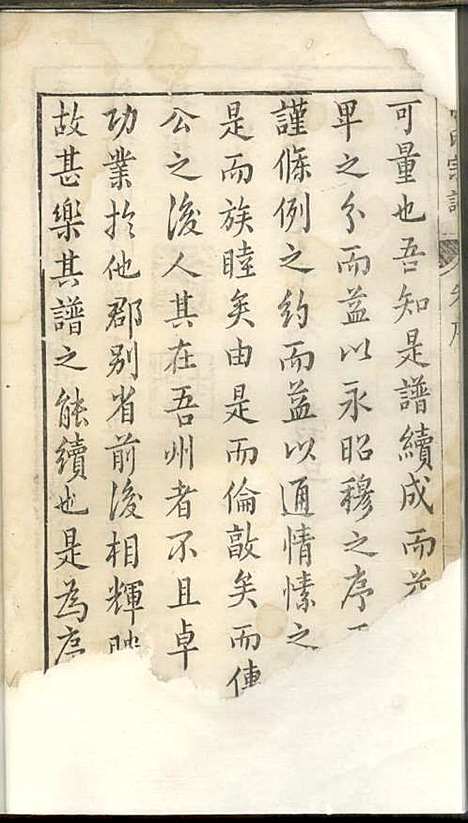 氏宗譜 序
可量也吾知是譜續成而益
畀之分而益以永昭穆之序
謹條例之約而益以通情愫之
是而族睦矣由是而倫敦矣而俥
公之後人其在吾州者不且卓
功業於他郡别省前後相輝映
故甚樂其譜之能續也是為序